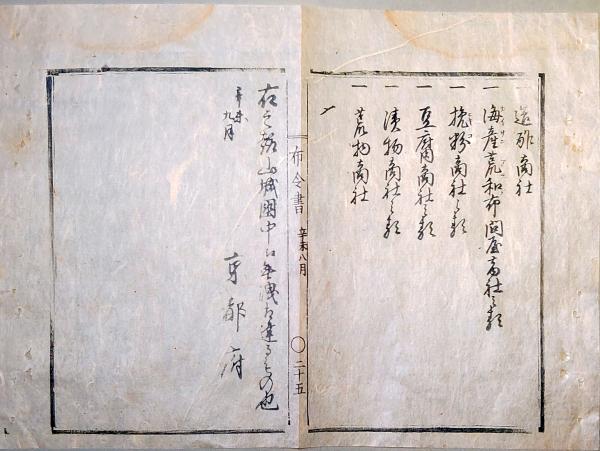 一 造酢商社
一 海産荒和布問屋商社之類
一 挽粉商社之類
一 豆腐商社之類
一 漬物商社之類
一 荒物商社
布令書 辛未八月 〇二十五
右之趣山城國中江無洩相達るもの也
辛未九月
京都府